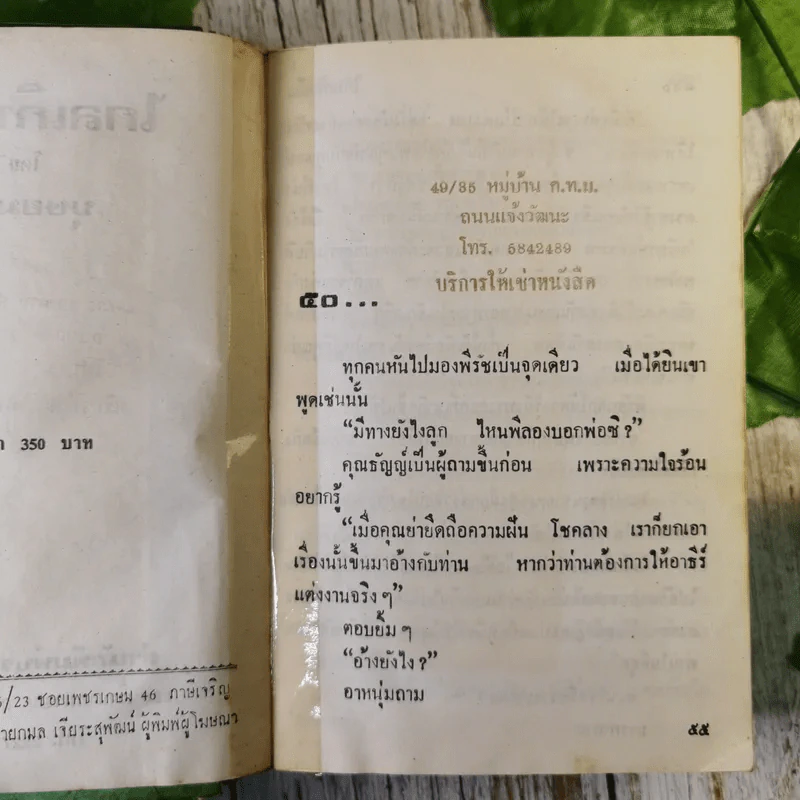 ไกลเกิ
โดย
บุษยม
350 บาท
/23 ซอยเพชรเกษม 46 ภาษีเจริญ
ายกมล เจียระสุพัฒน์ ผู้พิมพ์ผู้โฆษณา
49/85 หมู่บ้าน ค.ท.ม.
ถนนแจ้งวัฒนะ
โทร. 5842489
บริการให้เช่าหนังสือ
๕๐...
ทุกคนหันไปมองพีรัชเป็นจุดเดียว เมื่อได้ยินเขา
พูดเช่นนั้น
“มีทางยังไงลูก ไหนพีลองบอกพ่อซิ?”
คุณธัญญ์เป็นผู้ถามขึ้นก่อน เพราะความใจร้อน
อยากรู้
“เมื่อคุณย่ายึดถือความฝัน โชคลาง เราก็ยกเอา
เรื่องนั้นขึ้นมาอ้างกับท่าน หากว่าท่านต้องการให้อาธีร์
แต่งงานจริงๆ”
ตอบยิ้มๆ
“อ้างยังไง?”
อาหนุ่มถาม
๕๕